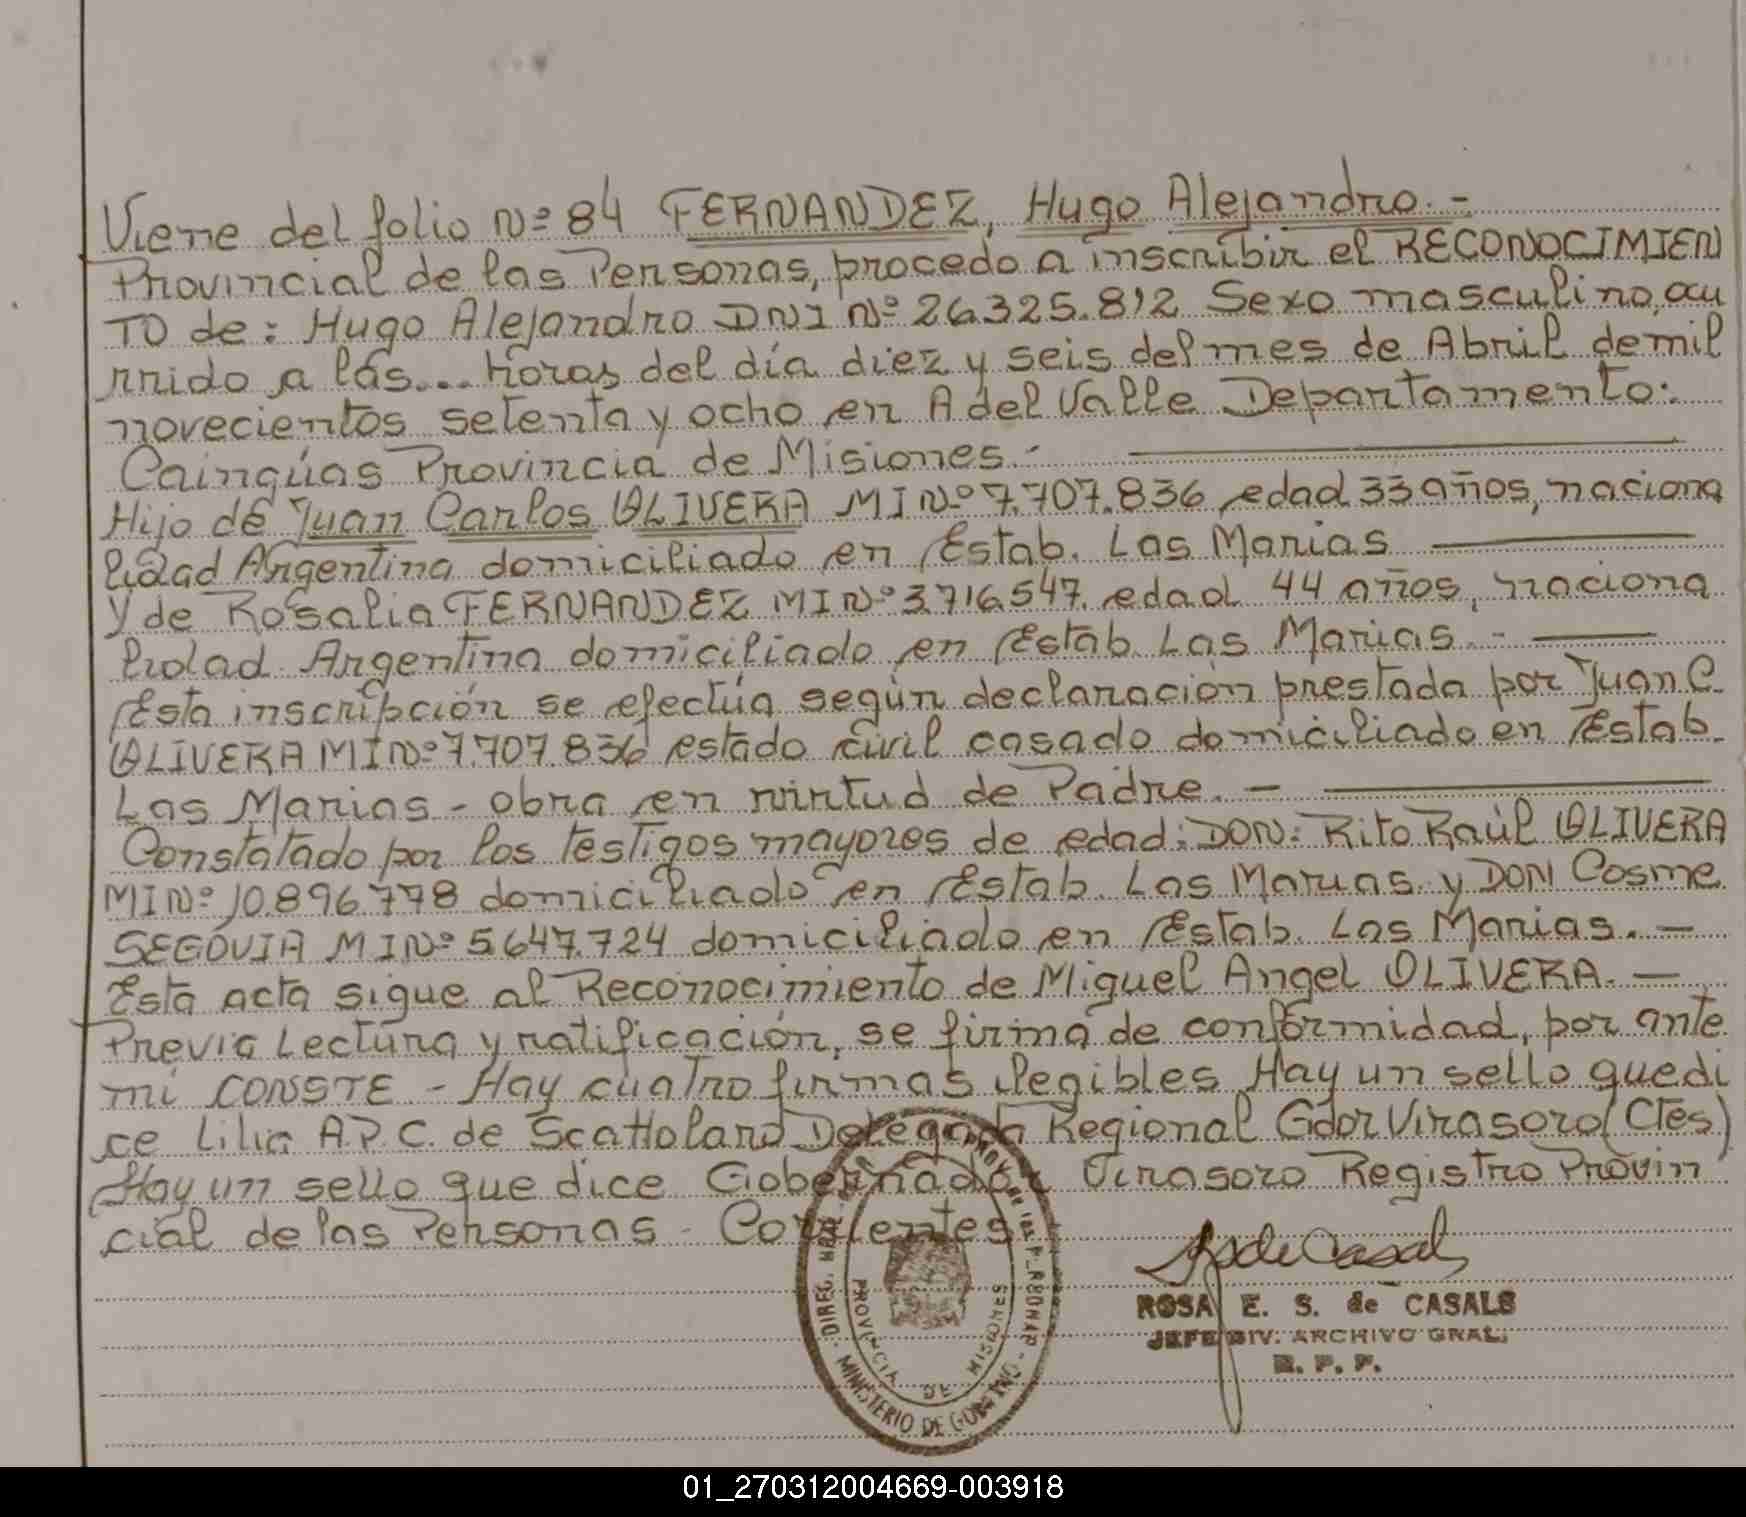 Viene del folio Nº 84 FERNANDEZ, Hugo Alejandro.-
Provincial de las Personas, procedo a inscribir el RECONOCIMIEN
TO de: Hugo Alejandro DNI Nº 26.325.812 Sexo masculino, ocu
rrido a las... horas del día diez y seis del mes de Abril de mil
novecientos setenta y ocho en A del Valle Departamento:
Caingúas Provincia de Misiones.-
Hijo de Juan Carlos OLIVERA MI Nº 7.707.836 edad 33 años, naciona
lidad Argentina domiciliado en Estab. Las Marias
y de Rosalia FERNANDEZ MI Nº 3.716.547. edad 44 años, naciona
lidad Argentina domiciliado en Estab. Las Marias.-
Esta inscripción se efectúa según declaración prestada por Juan C.
OLIVERA MI Nº 7.707.836 estado civil casado domiciliado en Estab.
Las Marias - obra en virtud de Padre.-
Constatado por los testigos mayores de edad: DON: Rito Raúl OLIVERA
MI Nº 10.896.778 domiciliado en Estab. Las Marias. y DON Cosme
SEGOVIA MI Nº 5.647.724 domiciliado en Estab. Las Marias.-
Esta acta sigue al Reconocimiento de Miguel Angel OLIVERA.-
Previa Lectura y ratificación, se firma de conformidad, por ante
mi CONSTE - Hay cuatro firmas ilegibles Hay un sello que di
ce Lilia A.P.C. de Scattolaro Delegada Regional Gdor Virasoro (Ctes)
Hay un sello que dice Gobernador Virasoro Registro Provin
cial de las Personas - Corrientes
PROVINCIA DE MISIONES
MINISTERIO DE GOBIERNO
ROSA E. S. de CASALS
JEFE DIV. ARCHIVO GRAL.
R. P. P.
01_270312004669-003918